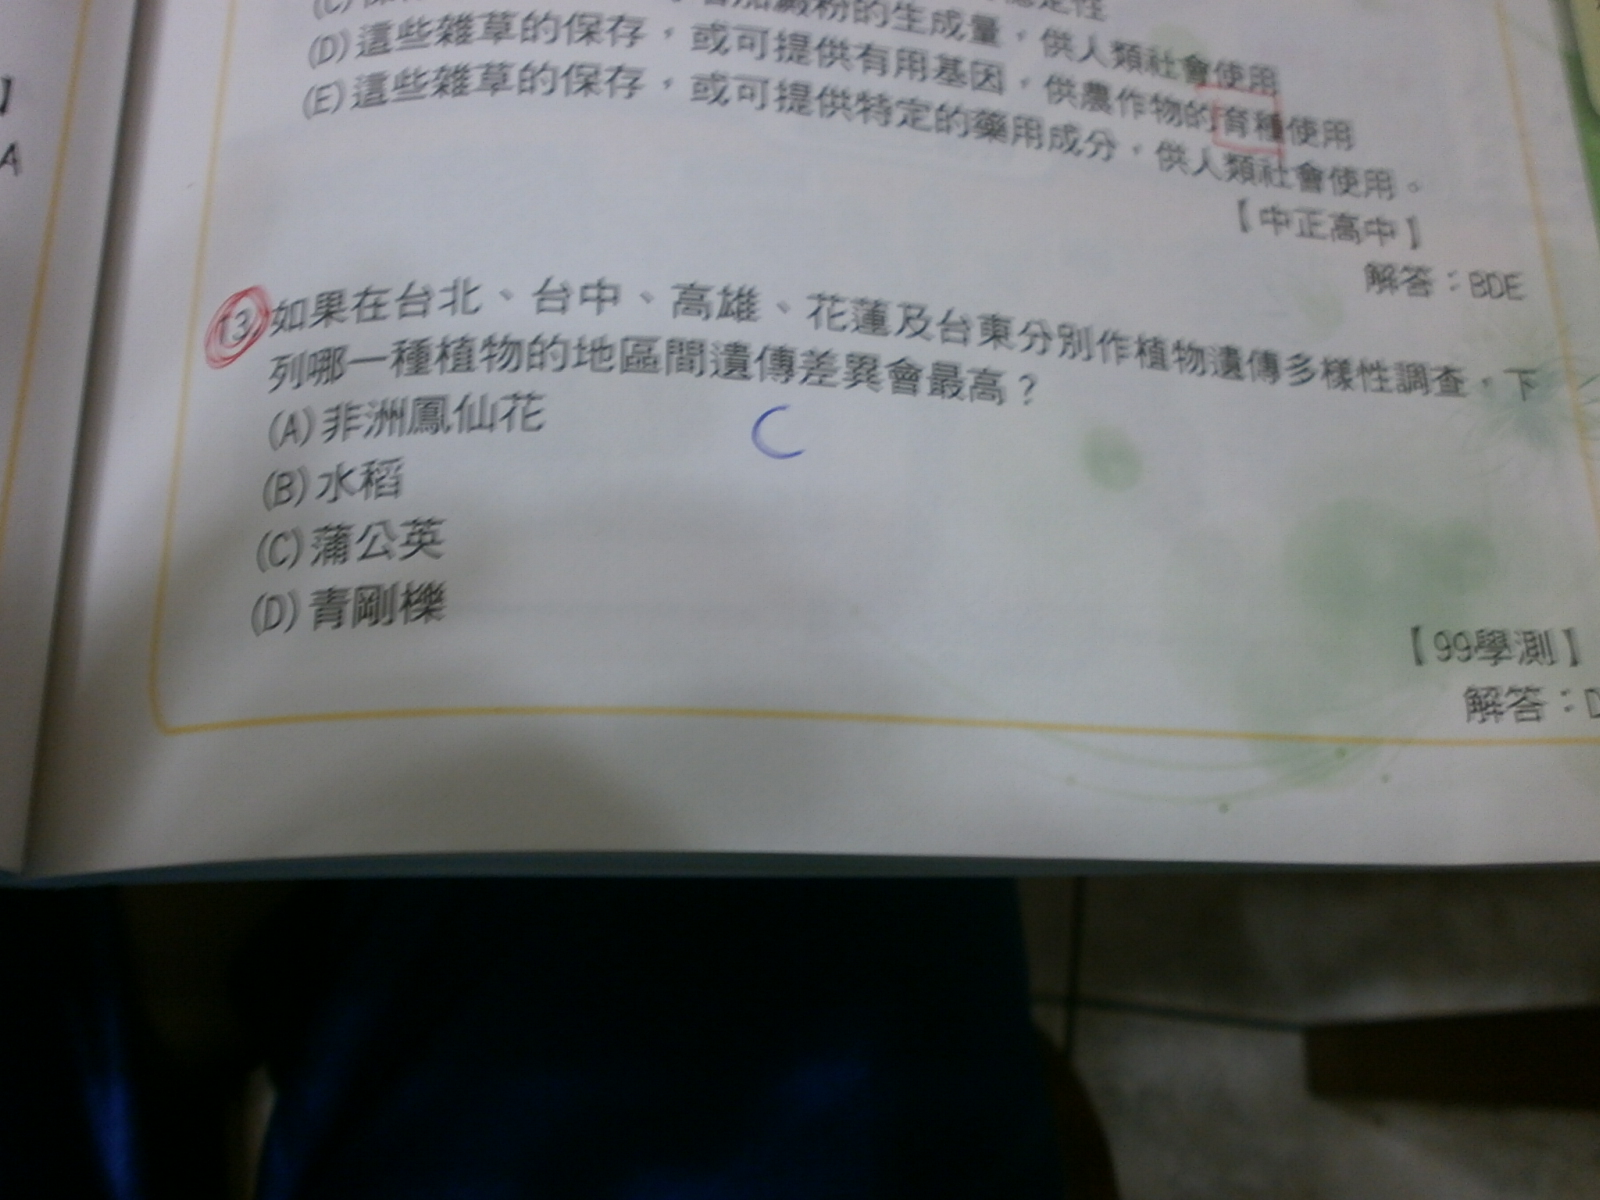 (D)這些雜草的保存，或可提供有用基因，供農作物的育種使用
(E)這些雜草的保存，或可提供特定的藥用成分，供人類社會使用。
【中正高中】
解答：BDE
如果在台北、台中、高雄、花蓮及台東分別作植物遺傳多樣性調查，下
列哪一種植物的地區間遺傳差異會最高？
C
(A)非洲鳳仙花
(B)水稻
(C)蒲公英
(D)青剛櫟
【99學測】
解答：D
】
A